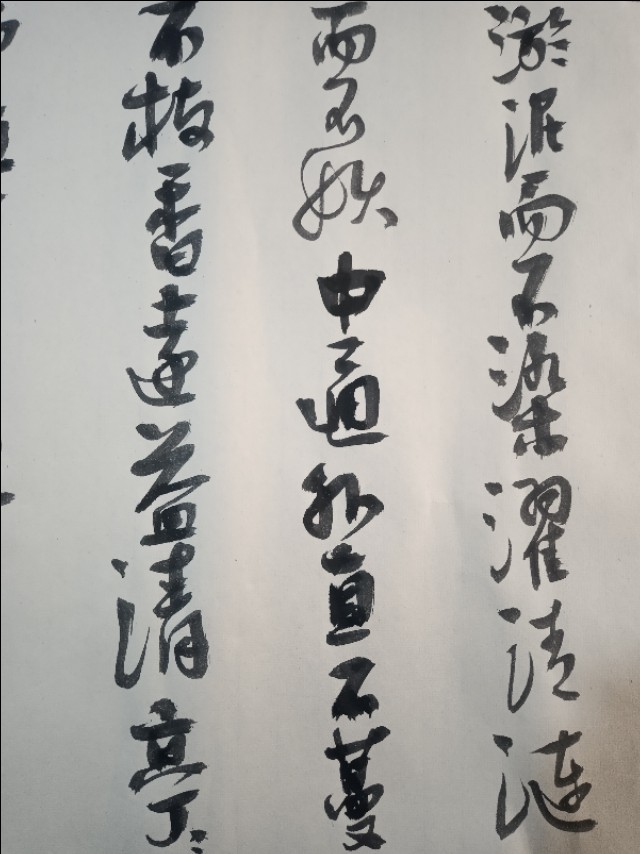 淤泥而不染濯清涟
而不妖中通外直不蔓
不枝香远益清亭亭